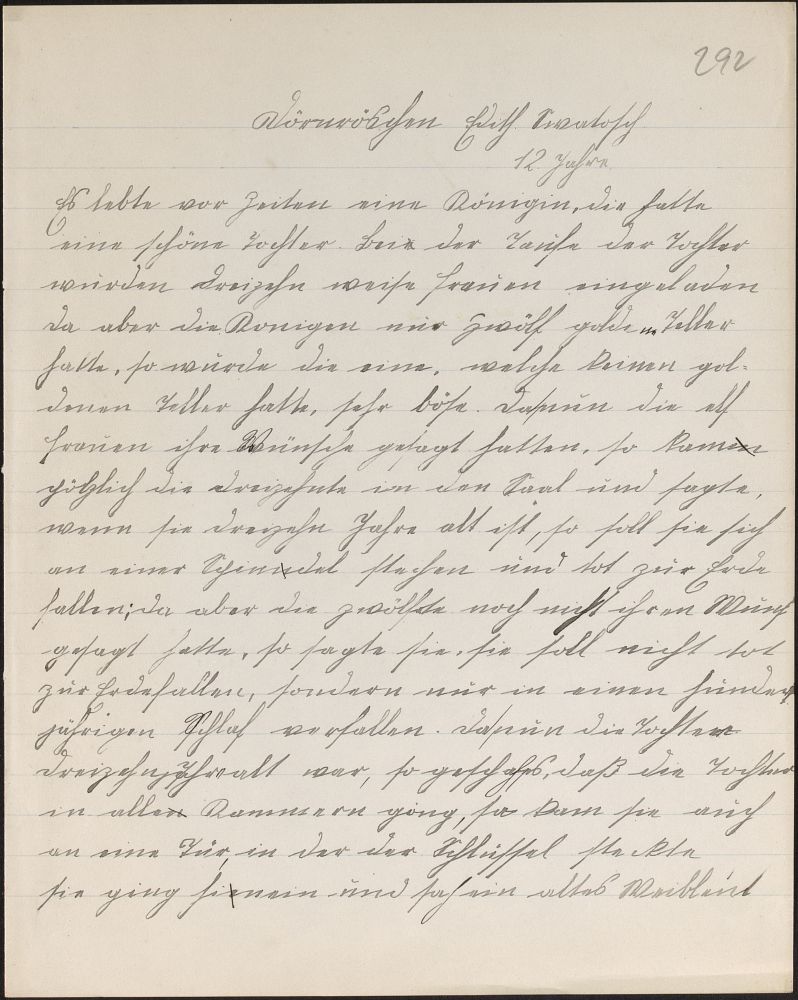 292
Dörnröschen Edith Swatosch
12 Jahre
Es lebte vor Zeiten eine Königin, die hatte
eine schöne Tochter. Bei der Taufe der Tochter
wurden dreizehn weise Frauen eingeladen
da aber die Konigen nur zwölf golde... Teller
hatte, so wurde die eine, welche keinen gol-
denen Teller hatte, sehr böse. Da nun die elf
Frauen ihre Wünsche gesagt hatten, so kam
pötzlich die dreizehnte in den Saal und sagte,
wenn sie dreizehn Jahre alt ist, so soll sie sich
an einer Spindel stechen und tot zur Erde
fallen; da aber die zwölfte noch nicht ihren Wunsch
gesagt hatte, so sagte sie, sie soll nicht tot
zur Erde fallen, sondern nur in einen hundert
jährigen Schlaf verfallen. Da nun die Tochter
dreizehnjahralt war, so geschah es, daß die Tochter
in alle Kammern ging, so kam sie auch
an eine Tür, in der der Schlüssel steckte
sie ging hinein und sah ein altes